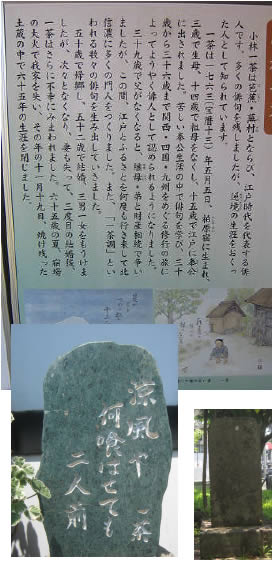 小林一茶は芭蕉・蕪村とならび、江戸時代を代表する俳
人です。多くの俳句を残しましたが、逆境の生涯をおくっ
た人として知られています。
一茶は一七六三（宝暦十三）年五月五日、柏原宿に生まれ、
三歳で生母、十四歳で祖母をなくし、十五歳で江戸に奉公
に出されました。苦しい奉公生活の中で俳句を学び、三十
歳から三十六歳まで関西・四国・九州をめぐる修行の旅に
よってようやく俳人として認められるようになりました。
三十九歳で父がなくなると、継母・弟と財産相続で争い
ましたが、この間、江戸とふるさとを何度も行き来して北
信濃に多くの門人をつくりました。また、「一茶調」とい
われる数々の俳句を生み出していきました。
五十歳で帰郷し、五十二歳で結婚、三男一女をもうけま
したが、次々となくなり、妻も失って、三度目の結婚後、
一茶はさらに不幸にみまわれました。六十五歳の夏、宿場
の大火で我家を失い、その年の十一月十九日、焼け残った
土蔵の中で六十五年の生涯を閉じました。
涼風や 一茶
何喰はせても
二人前